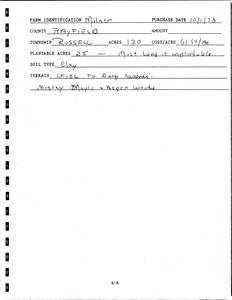 FARM IDENTIFICATION Milner PURCHASE DATE 10/1/78
COUNTY BAYFIELD AMOUNT
TOWNSHIP RUSSELL ACRES 120 COST/ACRE 61.54/Ac
PLANTABLE ACRES 25 — Most Land is unplantable
SOIL TYPE Clay
TERRAIN LEVEL TO Deep ravines.
Mostly Maple & Aspen woods
6-A